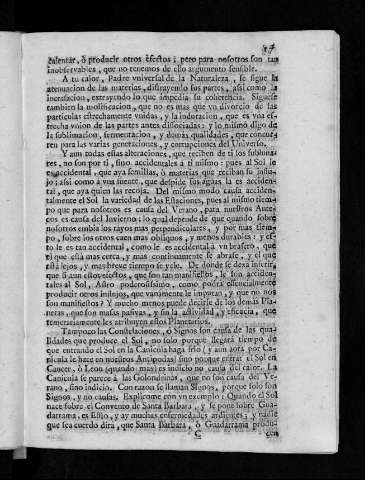 17
calentar, ò producir otros efectos; pero para nosotros son tan
inobservables, que no tenemos de ello argumento sensible.
A tu calor, Padre vniversal de la Naturaleza, se sigue la
atenuacion de las materias, distrayendo sus partes, assi como la
incrassacion, extrayendo lo que impedia su coherencia. Siguese
tambien la molificacion, que no es mas que vn divorcio de las
particulas estrechamente vnidas, y la induracion, que es vna es-
trecha vnion de las partes antes dissociadas: y lo mismo digo de
la sublimacion, fermentacion, y demàs qualidades, que concur-
ren para las varias generaciones, y corrupciones del Universo.
Y aun todas estas alteraciones, que reciben de ti los subluna-
res, no son por ti, sino accidentales à ti mismo: pues al Sol le
es accidental, que aya semillas, ò materias que reciban su influ-
jo; assi como à vna fuente, que despide sus aguas la es acciden-
tal, que aya quien las recoja. Del mismo modo causa acciden-
talmente el Sol la variedad de las Estaciones, pues al mismo tiem-
po que para nosotros es causa del Verano, para nuestros Ante-
cos es causa del Invierno; lo qual depende de que quando sobre
nosotros embia los rayos mas perpendiculares, y por mas tiem-
po, sobre los otros caen mas obliquos, y menos durables: y es-
to le es tan accidental, como le es accidental à vn brasero, que
el que està mas cerca, y mas continuamente se abrase, y el que
està lejos, y mas breve tiempo se yele. De donde se dexa inferir,
que si aun estos efectos, que son tan manifiestos, le son acciden-
tales al Sol, Astro poderosissimo, como podrà essencialmente
producir otros influjos, que vanamente le imputan, y que no nos
son manifiestos? Y mucho menos puede decirse de los demàs Pla-
netas, que son masas pasivas, y sin la actividad, y eficacia, que
temerariamente les atribuyen estos Planetarios.
Tampoco las Constelaciones, ò Signos son causa de las qua-
lidades que produce el Sol, no solo porque llegarà tiempo de
que entrando el Sol en la Canicula haga frio (y aun aora por Ca-
nicula le hace en nuestros Antipodas) sino porque entrar el Sol en
Cancer, ò Leon (quando mas) es indicio no causa del calor. La
Canicula se parece à las Golondrinas, que no son causa del Ve-
rano, sino indicio. Con razon se llaman Signos, porque solo son
Signos, y no causas. Explicome con vn exemplo: Quando el Sol
nace sobre el Convento de Santa Barbara, y se pone sobre Gua-
darrama, es Estio, y ay muchas enfermedades ardientes; y nadie
que sea cuerdo dirà, que Santa Barbara, ò Guadarrama produ-
C cen